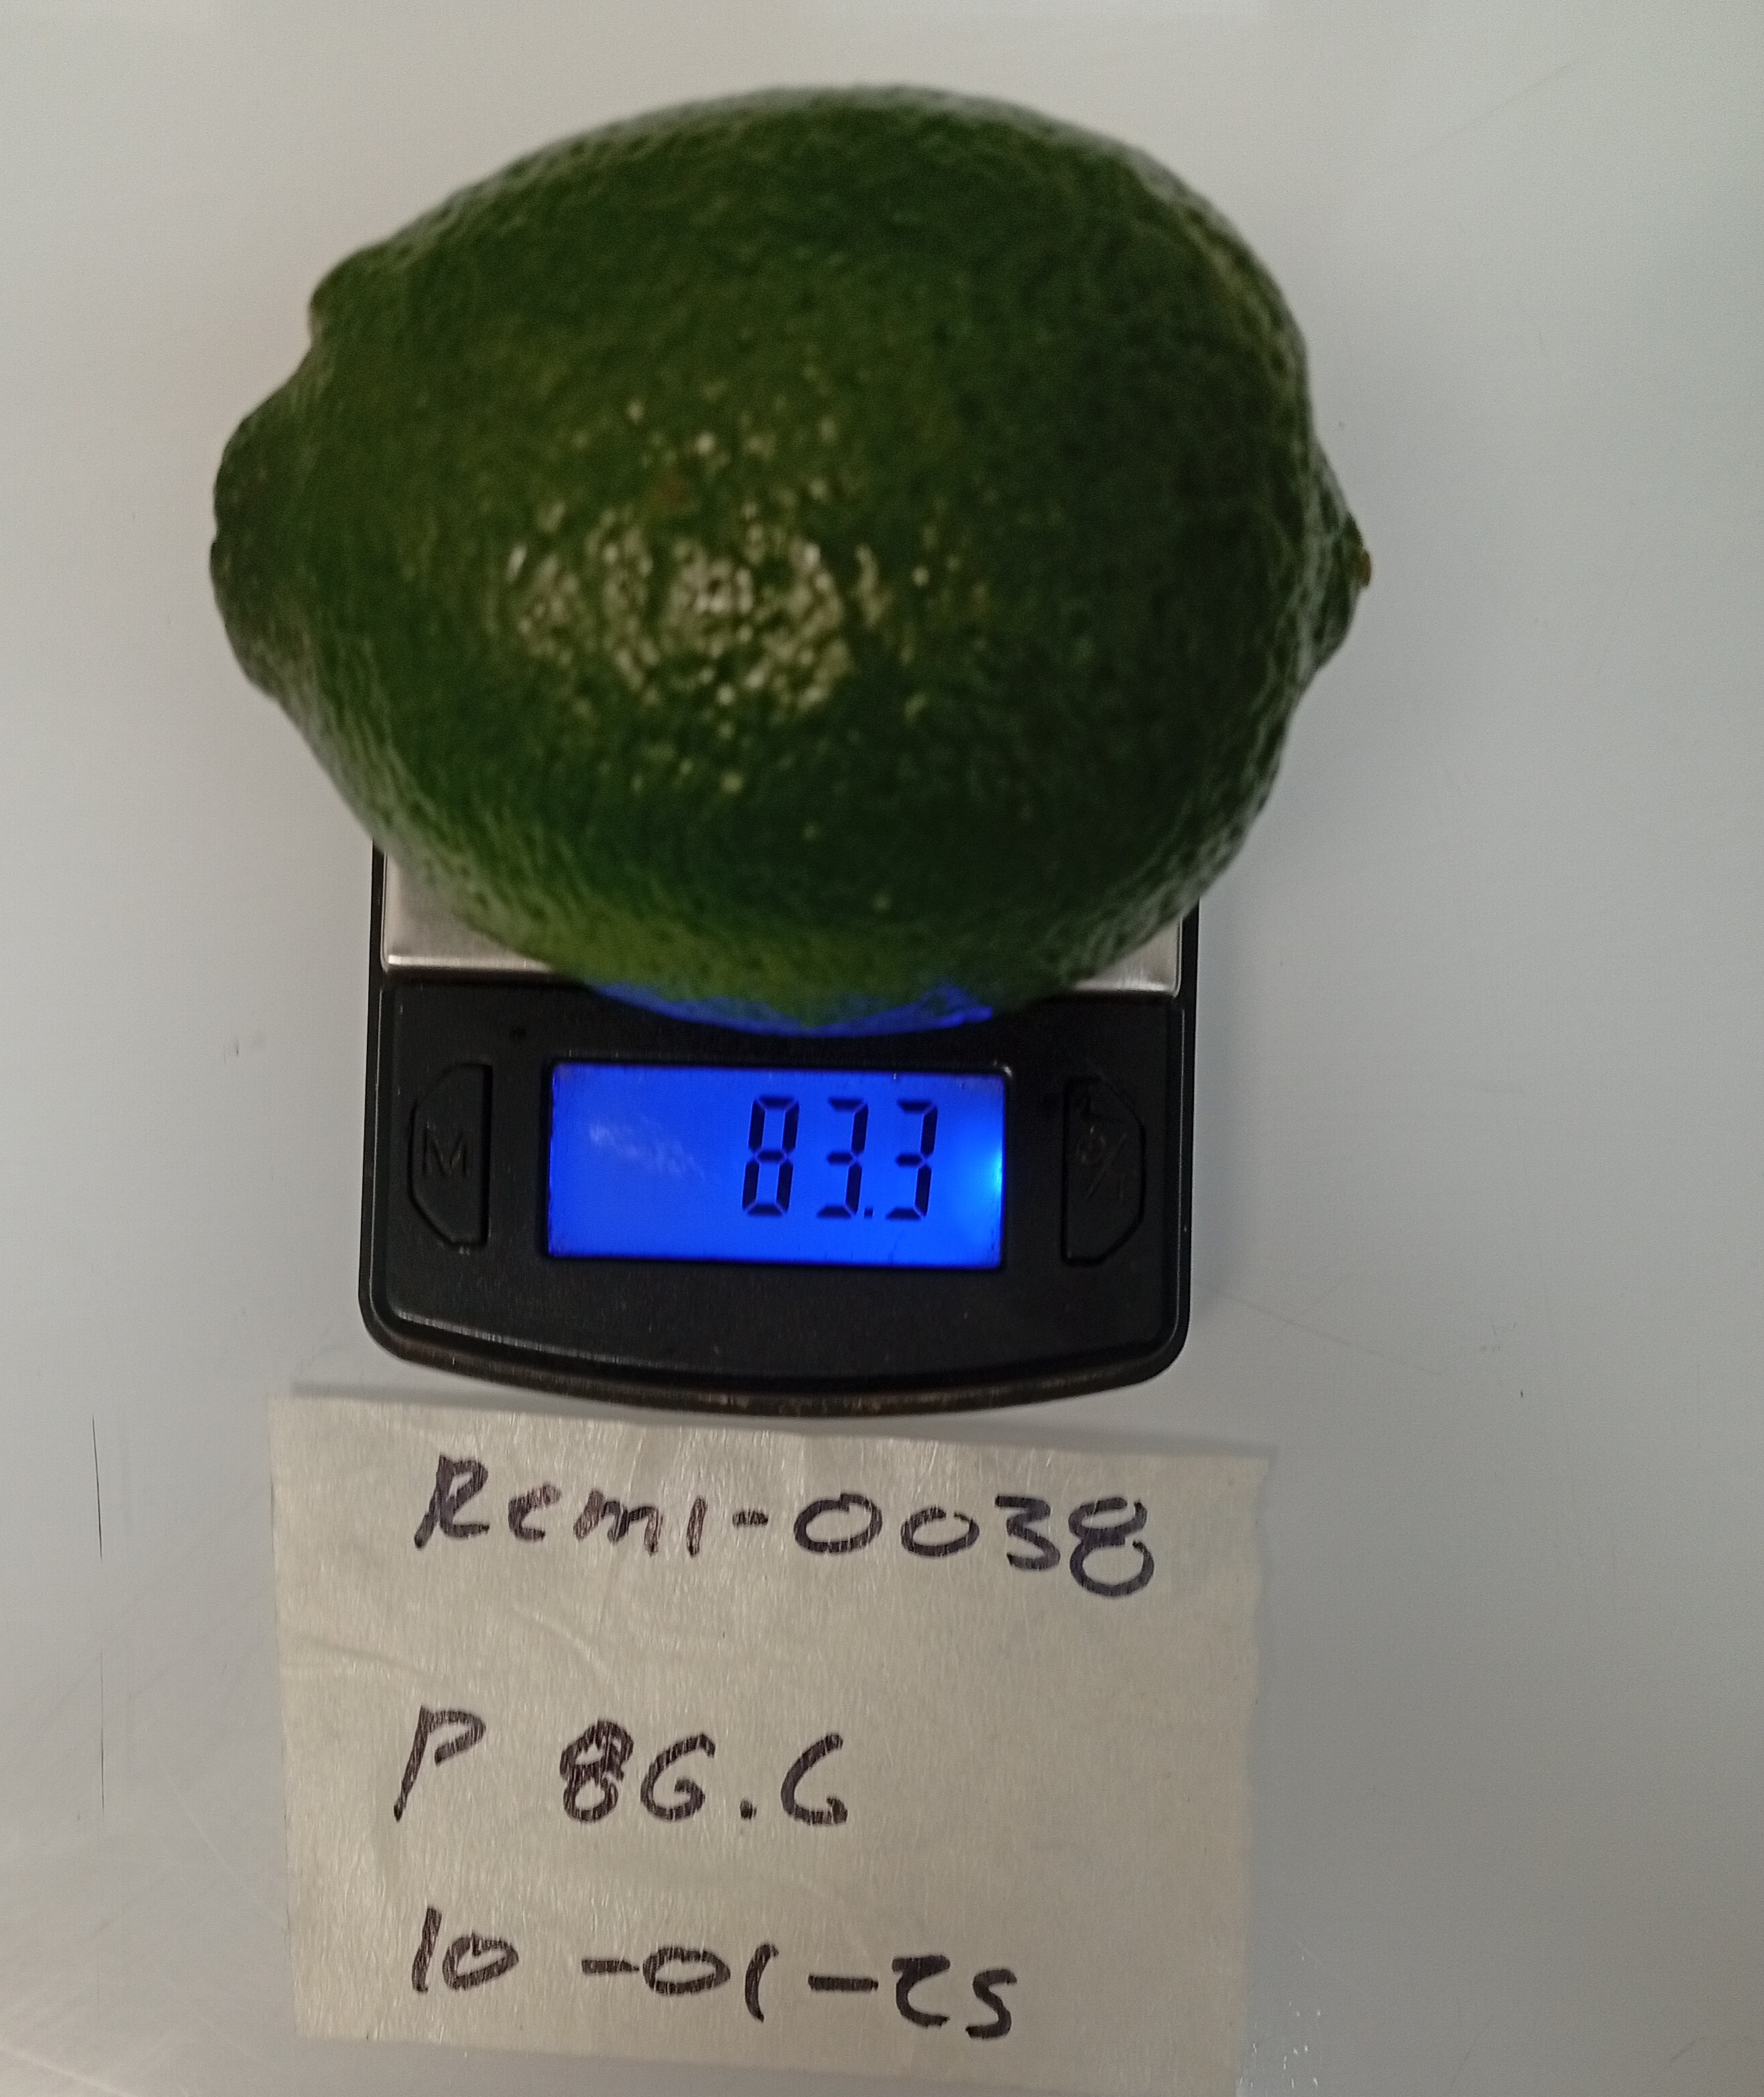 M
83.3
Remi-0038
P 86.6
10-01-25